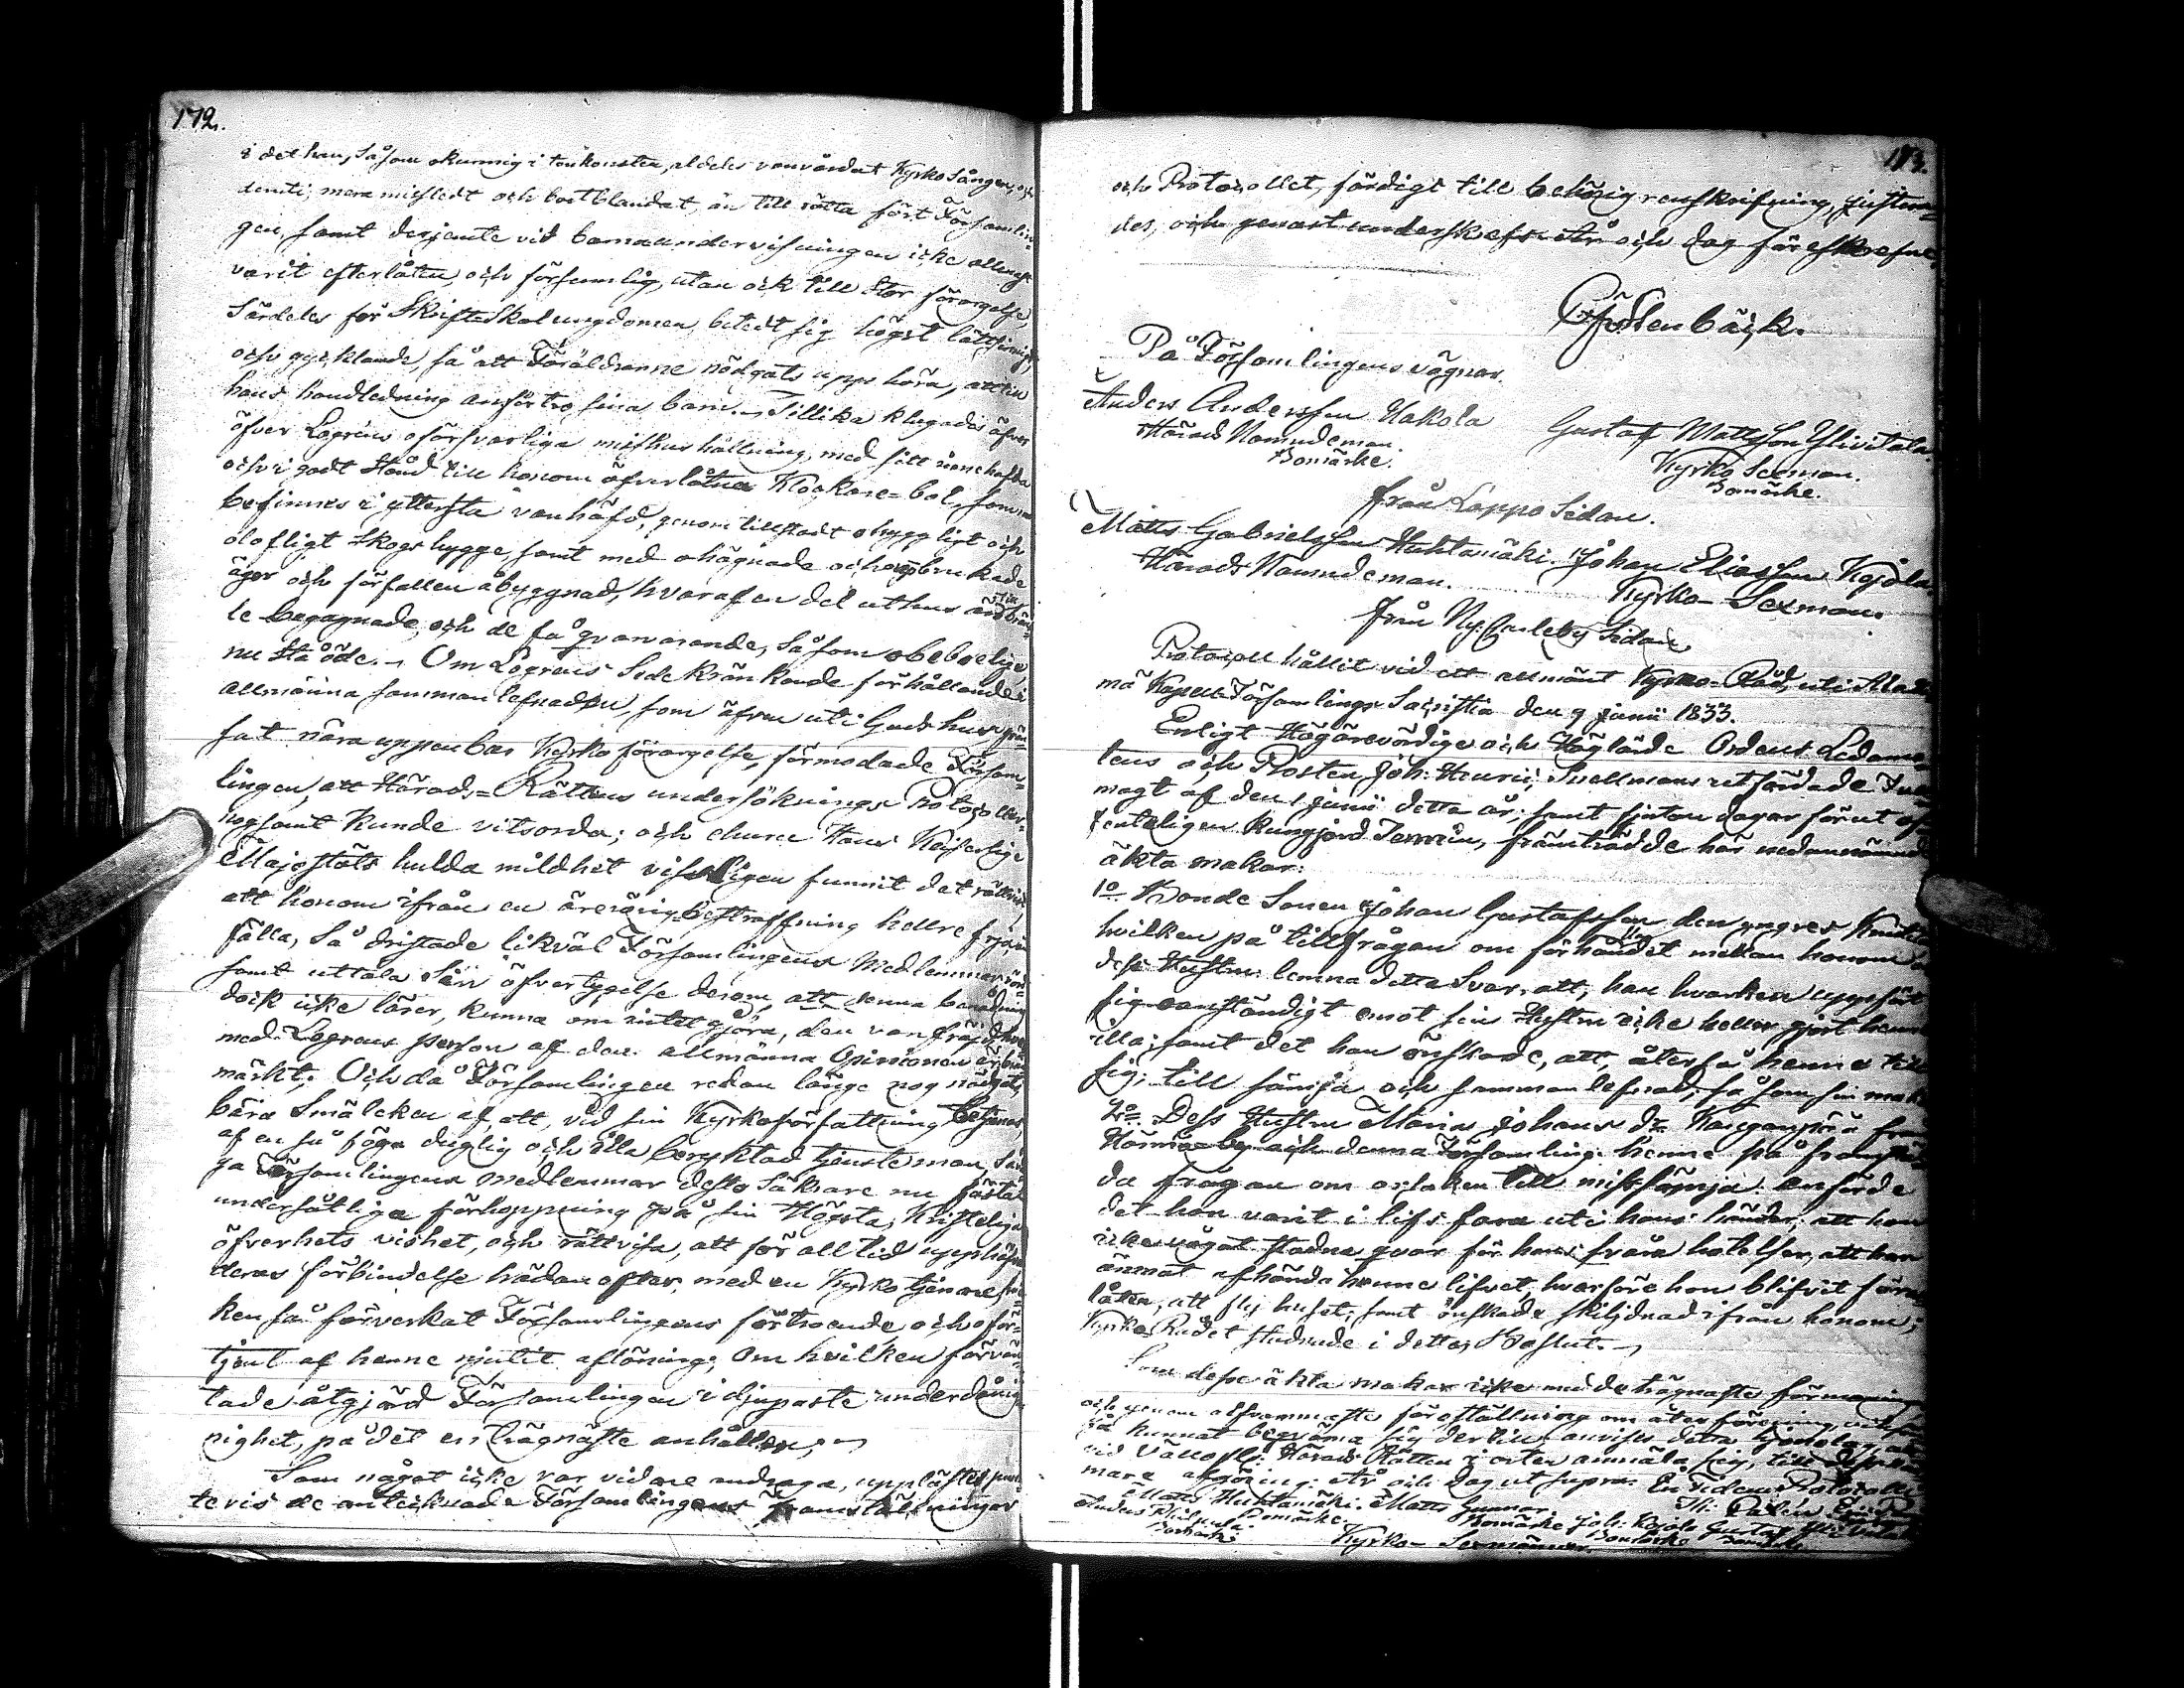 172.
i det han, såsom okunnig i tonkonsten, aldeles vanvårdat Kyrko Sången, och
deruti mera missledt och bortblandat, än till rätta fört Församlin-
gen, samt derjemte vid barnaundervisningen icke allenast
varit efterlåten, och försumlig, utan ock till stor förargelse,
Särdeles för Skriftskolungdomen, betedt sig högst lättsinnigt,
och gycklande, så att Föräldrarne nödgats upphöra, att in
hans handledning anförtro sina barn. Tillika klagades öfver
öfver Logréns oförsvarliga misshushållning, med sitt
och i godt stånd till honom öfverlåtna Klockare-bol, som nu
befinnes i yttersta vanhäfd, genom tillstadt obyggligt och
olofligt skogshygge, samt med ohägnade och obrukade
åger och förfallen åbyggnad, hvaraf en del uthus äro
le begagnade, och de få qvarvarande, såsom obeboelige,
nu stå öde. Om Logréns Sedekränkande förhållande i
allmänna sammanlefnaden, som äfven uti Guds hus
sat nära uppenbar Kyrkoförargelse, förmodade Försam-
lingen, att Härads-Rättens undersöknings Protocoller
nogsamt kunde vitsorda; och churu Hans Kejserlige
Majestäts hulda mildhet visserligen funnit det rättvist,
att honom ifrån en ärerörig bestraffning hellre fria, än
fälla, Så dristade likväl Församlingens Medlemmar
samt uttala Sin öfvertygelse derom, att denna benådning
dock icke lärer, kunna om intet göra, den vanfräjd, hvar
med Logréns person af den allmänna Opinionen är
märkt. Och då Församlingen redan länge nog nödgats,
bära Smäleken af, att, vid sin Kyrkoförfattning betjenas,
af en så föga duglig och illa beryktad tjensteman, Så
ga Församlingens medlemmar desto säkrare nu fästa
undersåtliga förhoppning på sin Högsta, Kristeliga
öfverhets vishet, och rättvisa, att för all tid upphäfva
deras förbindelse hädanefter, med en Kyrkotjenare, hvil-
ken så förverkat Församlingens förtroende och oför-
tjent af henne njutit aflöning; Om hvilken förvän-
tade åtgjärd Församlingen i djupaste underdånig-
nighet, på det enträgnaste anhåller;
Som något icke var vidare andraga, upplästes
tevis de antecknade Församlingens framställningar
173.
och Protocollet, färdigt till behörig renskrifning, justera-
des, och genast underskrefs. År och dag föreskrefne.
På Församlingens vägnar.
Anders Andersson Hakola Gustaf Mattsson Ylivitala
Härads Nämndeman. Kyrko Sexman.
Bomärke. Bomärke.
från Lappo Sidan.
Matts Gabrielsson Huhtamäki. Johan Eliasson Kojola.
Härads Nämndeman. Kyrko-Sexman.
från Ny Carleby Sidan.
Protocoll hållit vid ett allmänt Kyrko-Råd, uti Alah-
mä Kapell Församlings Sacristia den 9 Junii 1833.
Enligt Högärevördige och Höglärde Ordens Ledamo-
tens och Prosten Joh. Henric Snellmans utfärdade Full-
magt af den 1 Junii detta år, samt fjorton dagar förut of-
fenteligen kungjord Termin, framträdde här nedannämnde
äkta makar:
1o Bonde Sonen Johan Gustafsson den yngres
hvilken på tillfrågan om förhållandet mellan honom o
dess Hustru lemna detta Svar, att, han hvarken uppfört
sig oanständigt emot sin Hustru icke heller gjort henne
illa; samt det han önskade, att, återfå henne till
sig, till sämja och sammanlefnad; så som sin maka
2o Dess Hustru Maria Johans dr Kangasniä från
by och denna Församling. henne på framstäl-
da frågan om orsaken till misssämja. anförde
det hon varit i lifs fara uti hans händer. att hon
icke vågat stadna qvar för hans svåra hotelser, att han
ärnat afhända henne lifvet, hvarföre hon blifvit
låten, att fly huset, samt önskade skiljsnad ifrån honom;
Kyrko Rådet stadnade i dettas Beslut.
Som desse äkta makar icke med de trägnaste förmaning
och genom alfvarsammaste föreställning om återförening
på kunnat beqväma sig dertill anvises detta
vid Härads Rätten i orten anmäla sig, till
mare afgöring. År och dag ut supra. In fidem Protocolli
Matts Huhtamäki. Matts Gunnar.
Bomärke. Bomärke Joh. Kojola Gustaf
Anders
Bomärke Kyrko-Sexmänner. Bomärke Bomärke